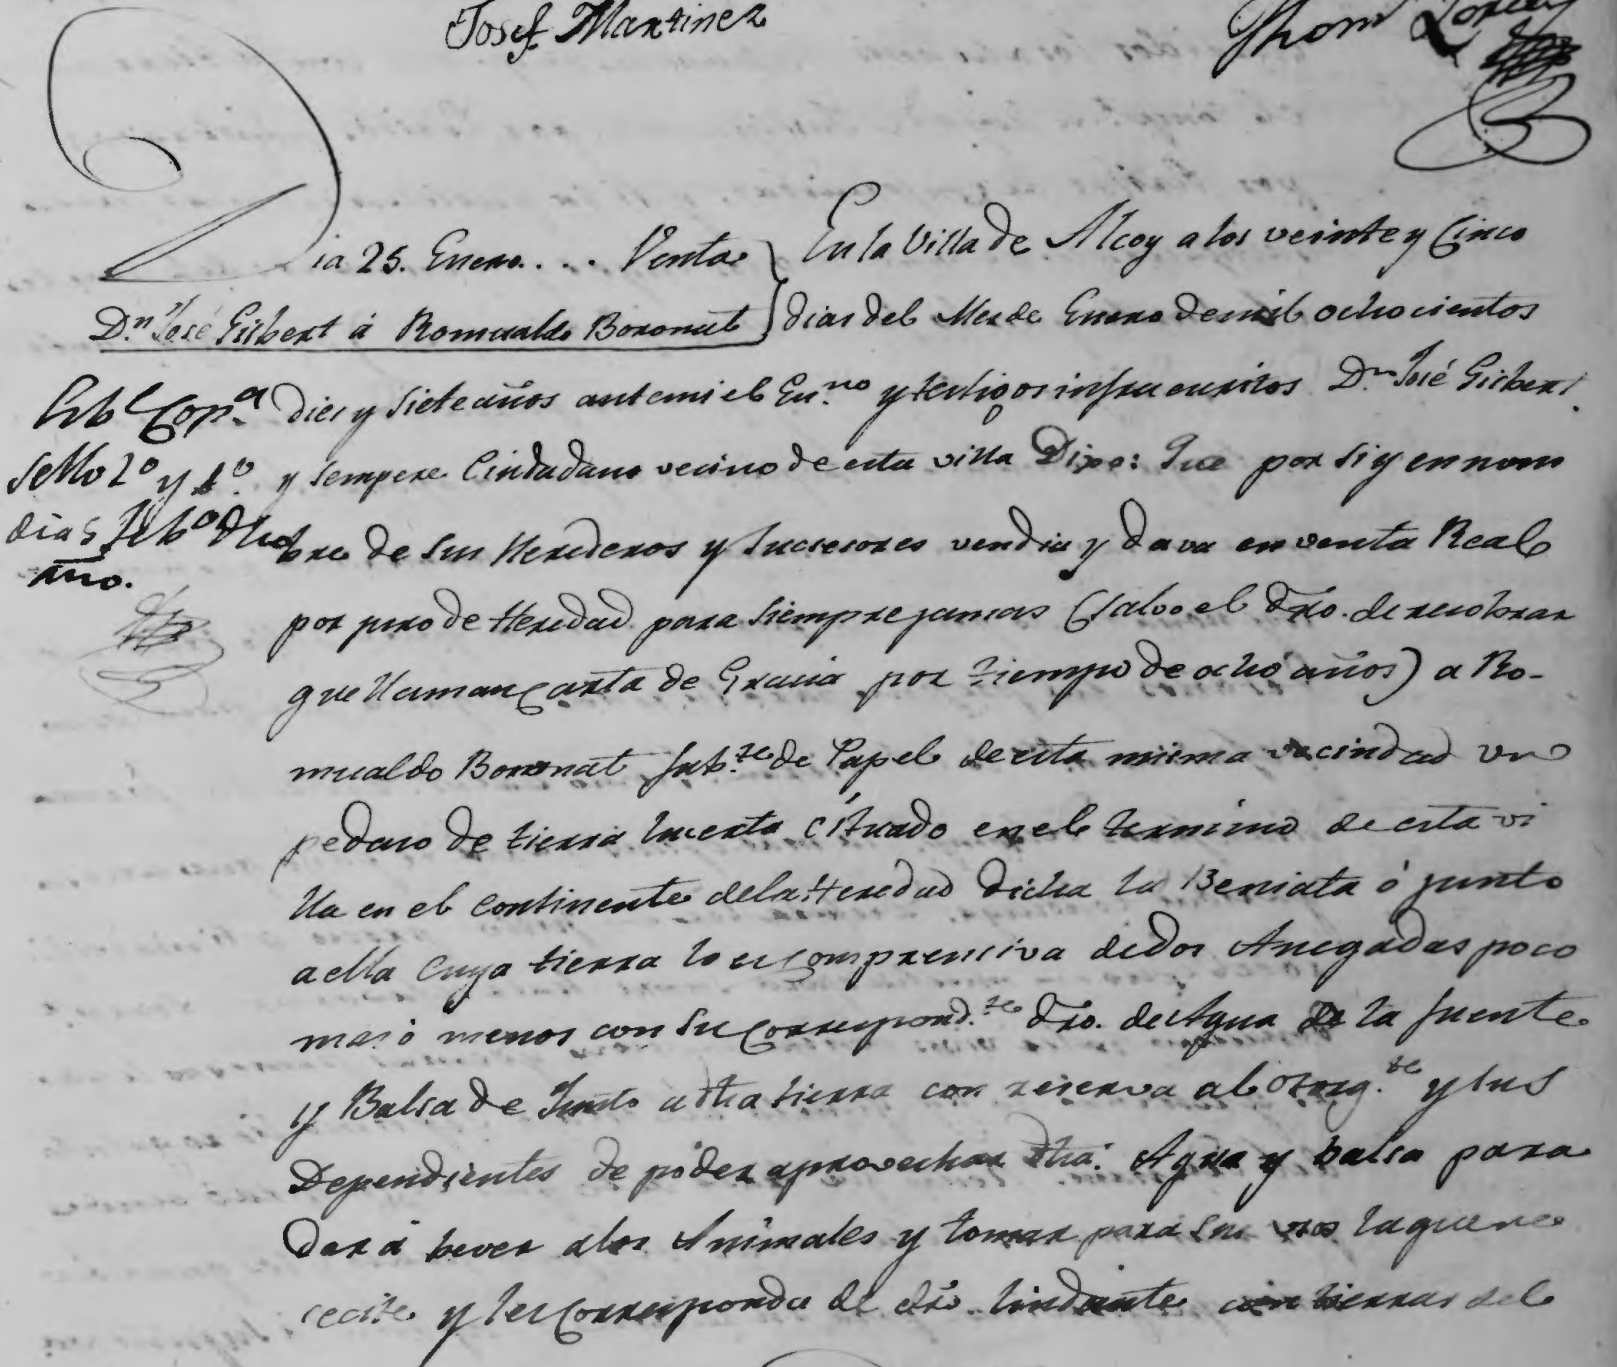 Josef Martinez
Thom Lorca
Dia 25. Enero. . . . Venta
Dn. José Gisbert á Romualdo Boronat
En la Villa de Alcoy a los veinte y Cinco
dias del Mes de Enero de mil ochocientos
Lib.e Cop.a
sello 2º y 4º
dia 5 Feb.o dho
año.
diez y siete años ante mi el En.no y testigos infraescritos Dn. José Gisbert
y Sempere Ciudadano vecino de esta villa Dixo: Que por si y en nom
bre de sus Herederos y Sucsesores vendia y dava en venta Real
por juro de Heredad para siempre jamas (salvo el dro. de recobrar
que llaman Carta de Gracia por tiempo de ocho años) a Ro-
mualdo Boronat Fab.te de Papel de esta misma vecindad un
pedaso de tierra huerta cituado en el termino de esta vi
lla en el continente de la Heredad dicha la Beniata ó junto
a ella Cuya tierra lo es Comprenciva de dos Anegadas poco
mas ó menos con su Correspond.te dro. de Agua de la fuente
y Balsa de Junto a dha tierra con reserva al Otorg.te y sus
Dependientes de poder aprovechar dha. Agua y balsa para
dar á bever a los Animales y tomar para sus usos la que ne
cecite y les Corresponda de dro. lindante con tierras del